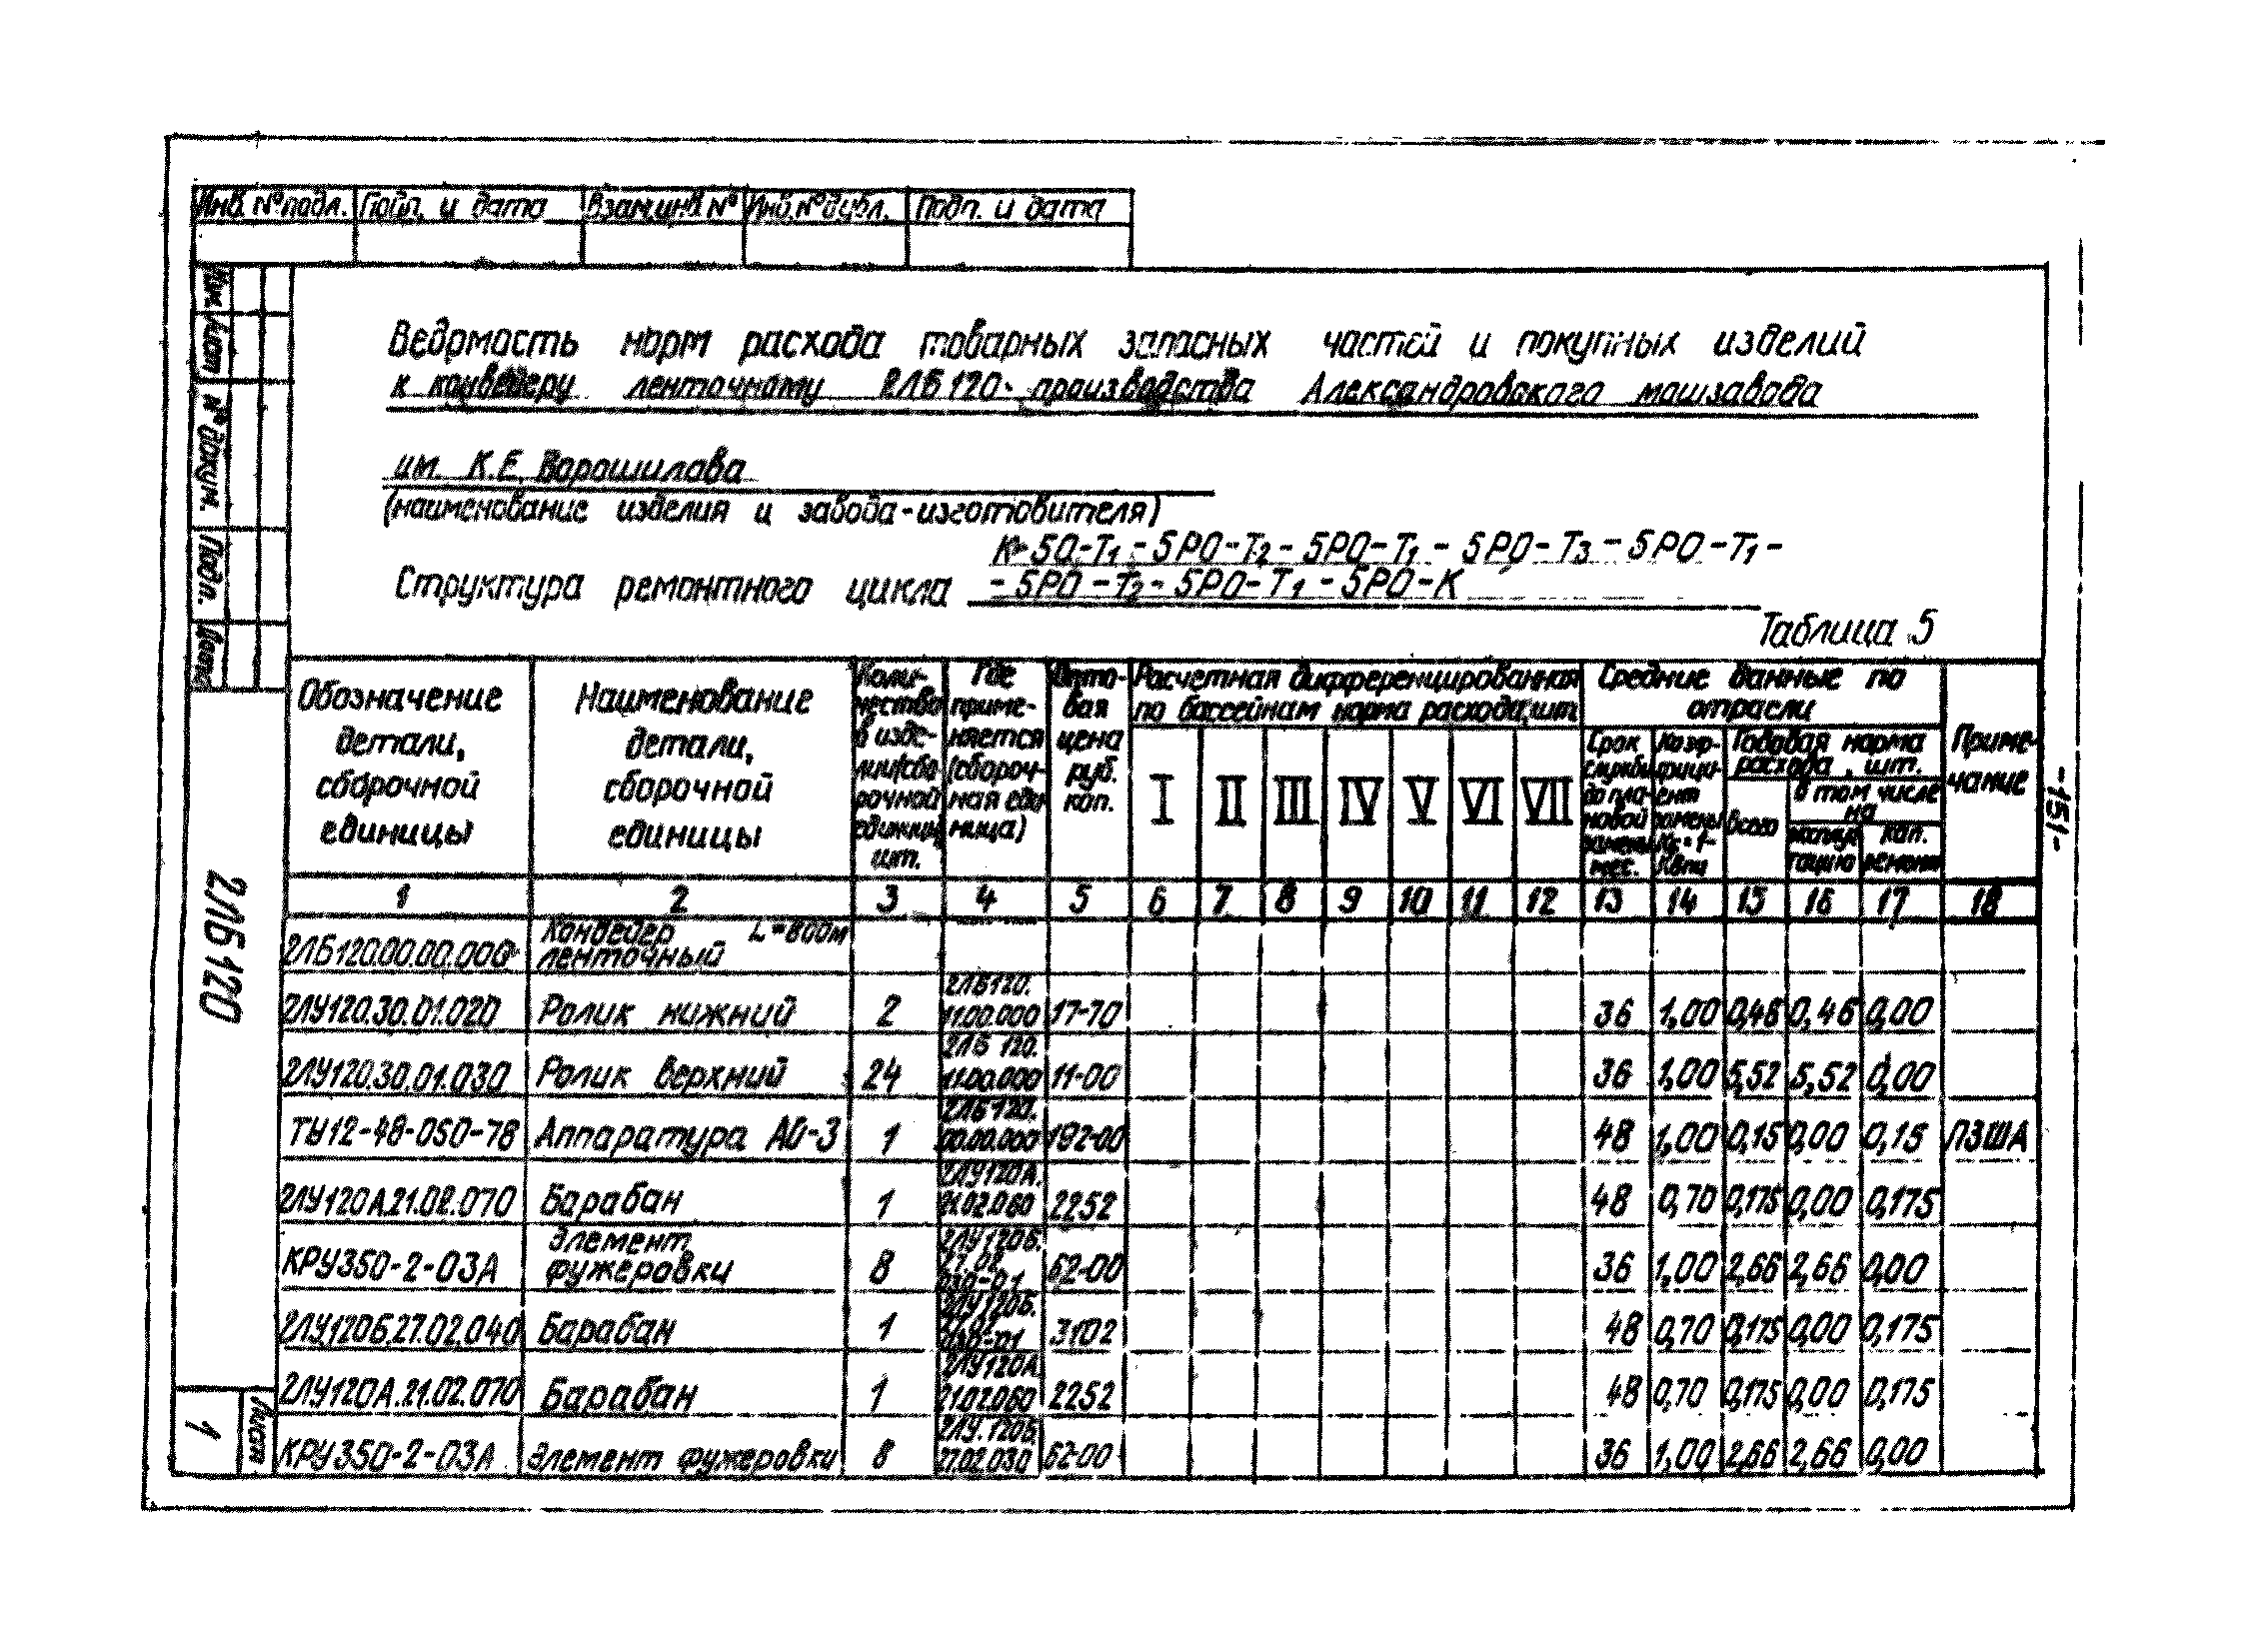 Инв. № подл. Подп. и дата Взам. инв. № Инв. № дубл. Подп. и дата
Изм. Лист № докум. Подп. Дата
Ведомость норм расхода товарных запасных частей и покупных изделий
к конвейеру ленточному 2ЛБ120 производства Александровского машзавода
им. К.Е. Ворошилова
(наименование изделия и завода-изготовителя)
К-5О-Т1-5РО-Т2-5РО-Т1-5РО-Т3-5РО-Т1-
Структура ремонтного цикла -5РО-Т2-5РО-Т1-5РО-К
Таблица 5
Обозначение детали, сборочной единицы
Наименование детали, сборочной единицы
Количество в изделии (сборочной единице), шт.
Где применяется (сборочная единица)
Оптовая цена руб. коп.
Расчетная дифференцированная по бассейнам норма расхода, шт.
I II III IV V VI VII
Средние данные по отрасли
Срок службы до плановой замены мес.
Коэффициент замены
Годовая норма расхода, шт.
Всего
в том числе на
эксплуатацию
кап. ремонт
Примечание
1 2 3 4 5 6 7 8 9 10 11 12 13 14 15 16 17 18
2ЛБ120.00.00.000 Конвейер ленточный L=800м
2ЛУ120.30.01.020 Ролик нижний 2 2ЛБ120.11.00.000 17-70 36 1,00 0,46 0,46 0,00
2ЛУ120.30.01.030 Ролик верхний 24 2ЛБ120.11.00.000 11-00 36 1,00 5,52 5,52 0,00
ТУ12-48-050-78 Аппаратура АО-3 1 2ЛБ120.00.00.000 192-00 48 1,00 0,15 0,00 0,15 ПЗША
2ЛУ120А.21.02.070 Барабан 1 2ЛУ120А.21.02.060 2252 48 0,70 0,175 0,00 0,175
КРУ350-2-03А Элемент фужеровки 8 2ЛУ120Б.27.02.030-01 62-00 36 1,00 2,66 2,66 0,00
2ЛУ120Б.27.02.040 Барабан 1 2ЛУ120Б.27.02.030-01 3102 48 0,70 0,175 0,00 0,175
2ЛУ120А.21.02.070 Барабан 1 2ЛУ120А.21.02.060 2252 48 0,70 0,175 0,00 0,175
КРУ350-2-03А Элемент фужеровки 8 2ЛУ.120Б.27.02.030 62-00 36 1,00 2,66 2,66 0,00
2ЛБ120
Лист
1
-151-